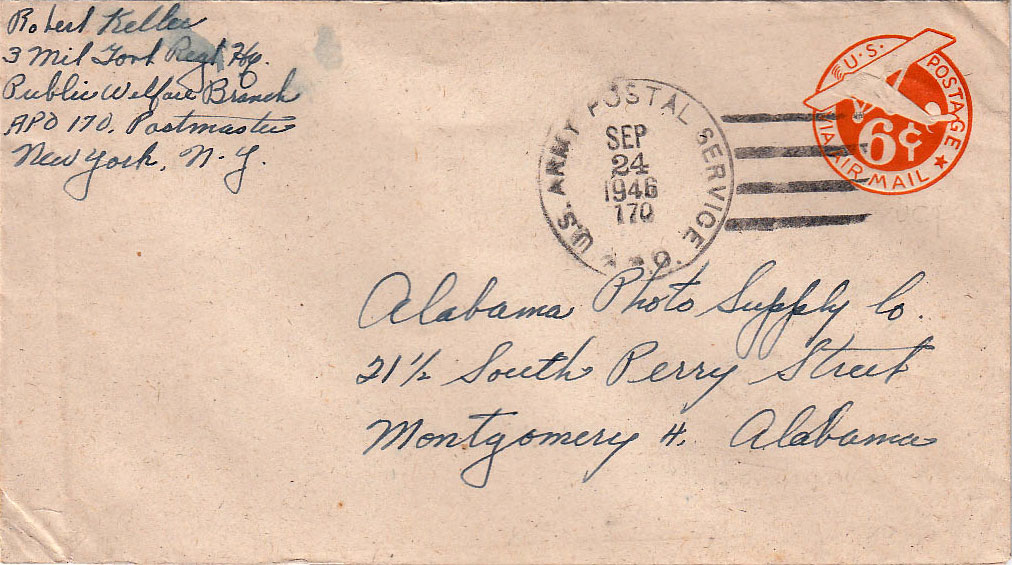 Robert Keller
3 Mil Govt Regt Hq.
Public Welfare Branch
APO 170, Postmaster
New York, N.Y.
U.S. ARMY POSTAL SERVICE
SEP
24
1946
170
U.S. POSTAGE
6¢
VIA AIR MAIL
Alabama Photo Supply Co.
21½ South Perry Street
Montgomery 4. Alabama